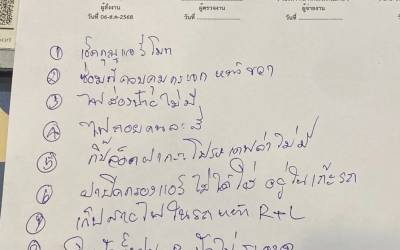 ผู้สั่งงาน ผู้ตรวจงาน ผู้จ่ายงาน
วันที่ 06-ส.ค.-2568 วันที่ วันที่
① เช็คกุญแจรีโมท
② ซ่อมที่ควบคุมกระจก หน้าขวา
③ ไฟส่องป้ายไม่มี
④ ไฟถอยคนละสี
⑤ กิ๊ปล็อคฝากระโปรง ไม่มี
⑥ ฝาปิดกรองแอร์ ไม่ได้ใส่ อยู่ในเก๊ะรถ
⑦ เก็บสายไฟในรถ หน้า R+L